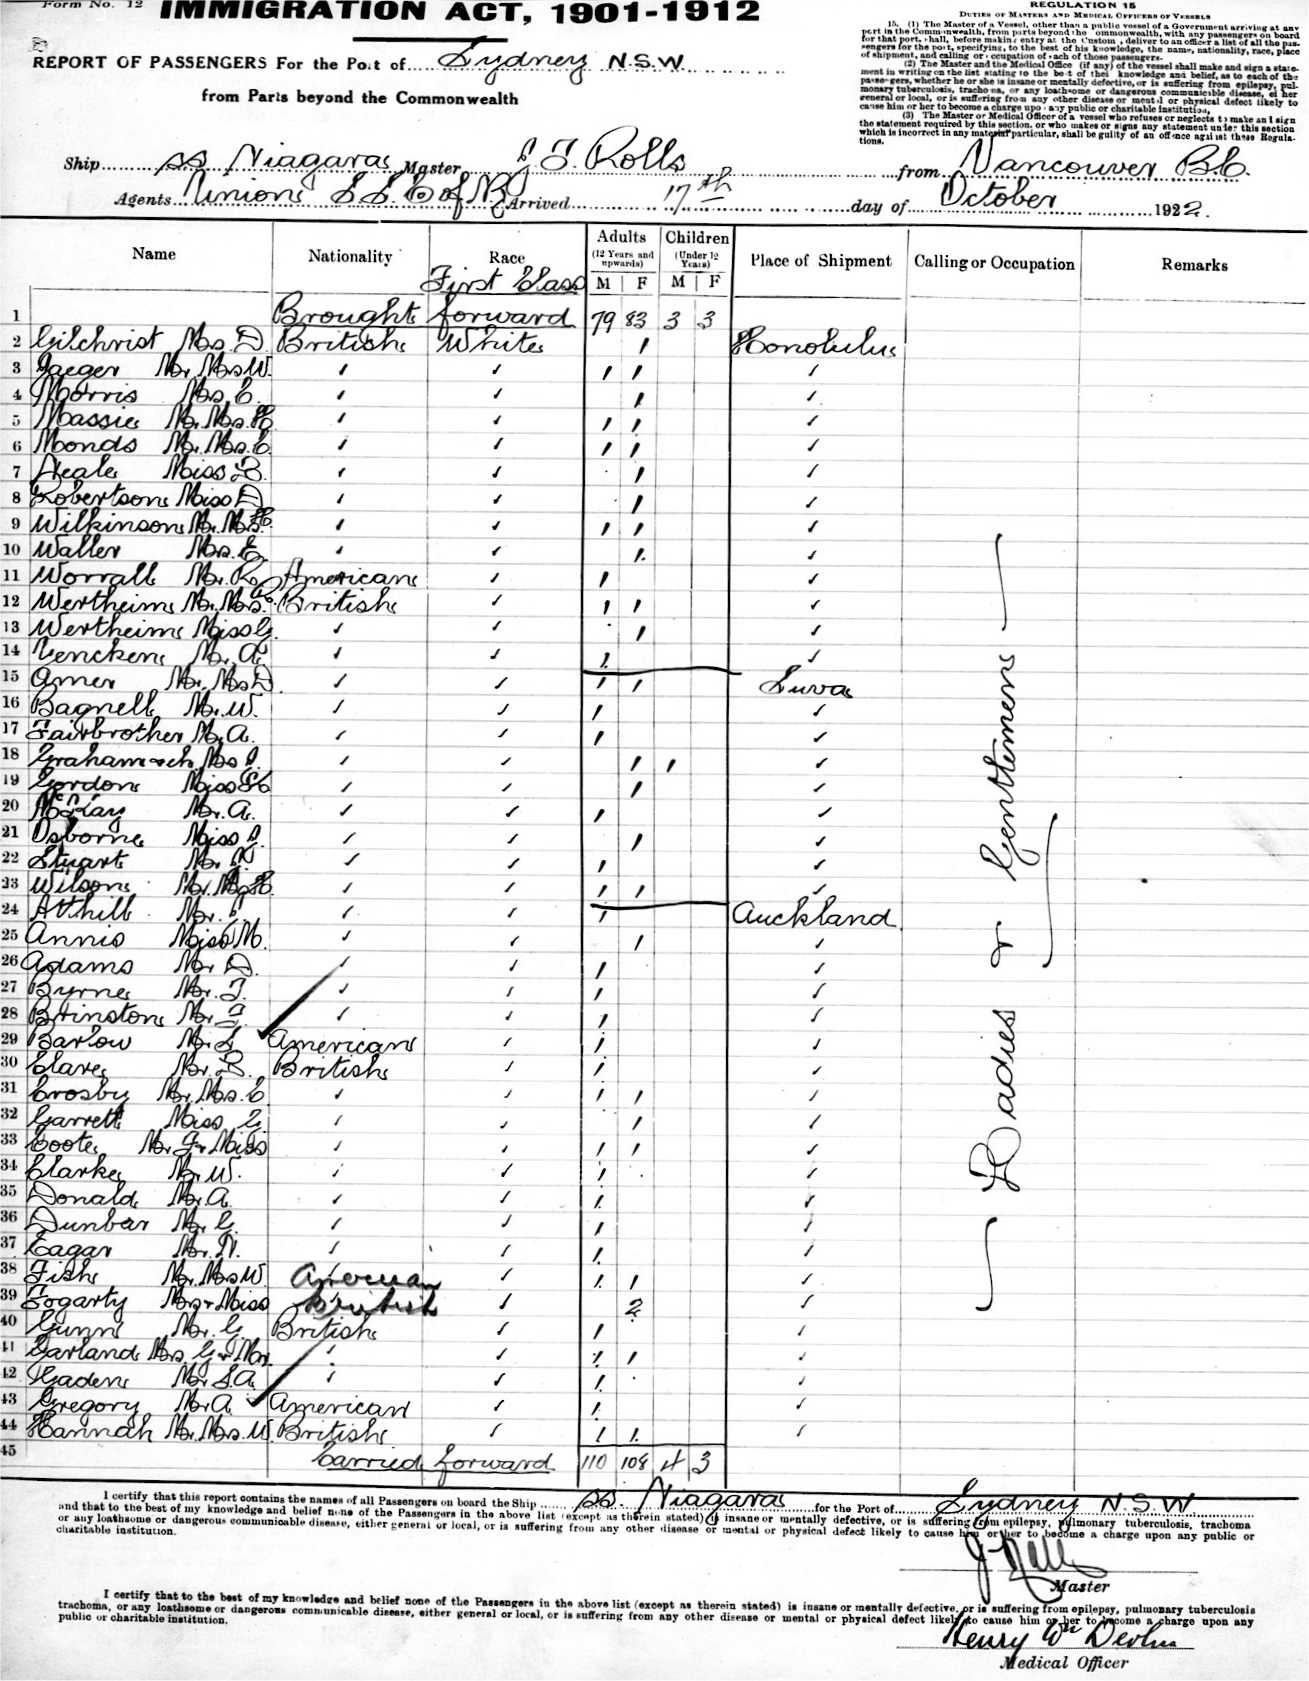 Form No. 12
IMMIGRATION ACT, 1901-1912
REPORT OF PASSENGERS For the Port of Sydney N.S.W.
from Parts beyond the Commonwealth
REGULATION 15
DUTIES OF MASTERS AND MEDICAL OFFICERS OF VESSELS
15. (1) The Master of a Vessel, other than a public vessel of a Government arriving at any
port in the Commonwealth, from parts beyond the Commonwealth, with any passengers on board
for that port, shall, before making entry at the Customs, deliver to an officer a list of all the pas-
sengers for the port, specifying, to the best of his knowledge, the name, nationality, race, place
of shipment, and calling or occupation of each of those passengers.
(2) The Master and the Medical Officer (if any) of the vessel shall make and sign a state-
ment in writing on the list stating to the best of their knowledge and belief, as to each of the
passengers, whether he or she is insane or mentally defective, or is suffering from epilepsy, pul-
monary tuberculosis, trachoma, or any loathsome or dangerous communicable disease, either
general or local, or is suffering from any other disease or mental or physical defect likely to
cause him or her to become a charge upon any public or charitable institution.
(3) The Master or Medical Officer of a vessel who refuses or neglects to make and sign
the statement required by this section, or who makes or signs any statement under this section
which is incorrect in any material particular, shall be guilty of an offence against these Regula-
tions.
Ship ss Niagara Master J. T. Rolls from Vancouver B.C.
Agents Union S S Co of NZ Arrived 17th day of October 1922.
Name Nationality Race Adults (12 Years and upwards) M F Children (Under 12 Years) M F Place of Shipment Calling or Occupation Remarks
First Class
1 Brought forward 79 83 3 3
2 Gilchrist Mrs. D. British White 1 Honolulu
3 Jaeger Mr. Mrs W. ✓ ✓ 1 1 ✓
4 Morris Mrs. C. ✓ ✓ 1 ✓
5 Massie Mr. Mrs. H. ✓ ✓ 1 1 ✓
6 Monds Mr. Mrs. C. ✓ ✓ 1 1 ✓
7 Neale Miss ✓ ✓ 1 ✓
8 Robertson Miss D ✓ ✓ 1 ✓
9 Wilkinson Mr. Mrs. H. ✓ ✓ 1 1 ✓
10 Waller Mrs. E. ✓ ✓ 1 ✓
11 Worrall Mr. R. American ✓ 1 ✓
12 Wertheim Mr. Mrs. British ✓ 1 1 ✓
13 Wertheim Miss G. ✓ ✓ 1 ✓
14 Vencken Mr. A. ✓ ✓ 1 ✓
15 Amer Mr. Mrs D. ✓ ✓ 1 1 Suva
16 Bagnell Mr. W. ✓ ✓ 1 ✓
17 Fairbrother Mr. A. ✓ ✓ 1 ✓
18 Graham & ch Mrs ✓ ✓ 1 1 ✓
19 Gordon Miss ✓ ✓ 1 ✓
20 McKay Mr. A. ✓ ✓ 1 ✓
21 Osborne Miss ✓ ✓ 1 ✓
22 Stuart Mr. ✓ ✓ 1 ✓
23 Wilson Mr. Mrs H. ✓ ✓ 1 1 ✓
24 Athill Mr. ✓ ✓ 1 Auckland
25 Annis Miss M. ✓ ✓ 1 ✓
26 Adams Mr. D. ✓ ✓ 1 ✓
27 Byrne Mr. T. ✓ ✓ 1 ✓
28 Brinston Mr. ✓ ✓ 1 ✓
29 Barlow Mr. American ✓ 1 ✓
30 Clare Mr. British ✓ 1 ✓
31 Crosby Mr. Mrs. C ✓ ✓ 1 1 ✓
32 Garrett Miss G. ✓ ✓ 1 ✓
33 Coote Mr. & Miss ✓ ✓ 1 1 ✓
34 Clarke Mr. W. ✓ ✓ 1 ✓
35 Donald Mr. A. ✓ ✓ 1 ✓
36 Dunbar Mr. G. ✓ ✓ 1 ✓
37 Eagar Mr. N. ✓ ✓ 1 ✓
38 Fish Mr. Mrs W. American ✓ 1 1 ✓
39 Fogarty Mrs & Miss British ✓ 2 ✓
40 Gunn Mr. G. British ✓ 1 ✓
41 Garland Mrs G & Mr. ✓ ✓ 1 1 ✓
42 Haden Mr. S. A. ✓ ✓ 1 ✓
43 Gregory Mr. A. American ✓ 1 ✓
44 Hannah Mr. Mrs. W. British ✓ 1 1 ✓
45 Carried forward 110 108 4 3
Ladies & Gentlemen
I certify that this report contains the names of all Passengers on board the Ship ss. Niagara for the Port of Sydney N.S.W.
and that to the best of my knowledge and belief none of the Passengers in the above list (except as therein stated) is insane or mentally defective, or is suffering from epilepsy, pulmonary tuberculosis, trachoma
or any loathsome or dangerous communicable disease, either general or local, or is suffering from any other disease or mental or physical defect likely to cause him or her to become a charge upon any public or
charitable institution.
J Rolls
Master
I certify that to the best of my knowledge and belief none of the Passengers in the above list (except as therein stated) is insane or mentally defective, or is suffering from epilepsy, pulmonary tuberculosis
trachoma, or any loathsome or dangerous communicable disease, either general or local, or is suffering from any other disease or mental or physical defect likely to cause him or her to become a charge upon any
public or charitable institution.
Henry Wm Devlin
Medical Officer